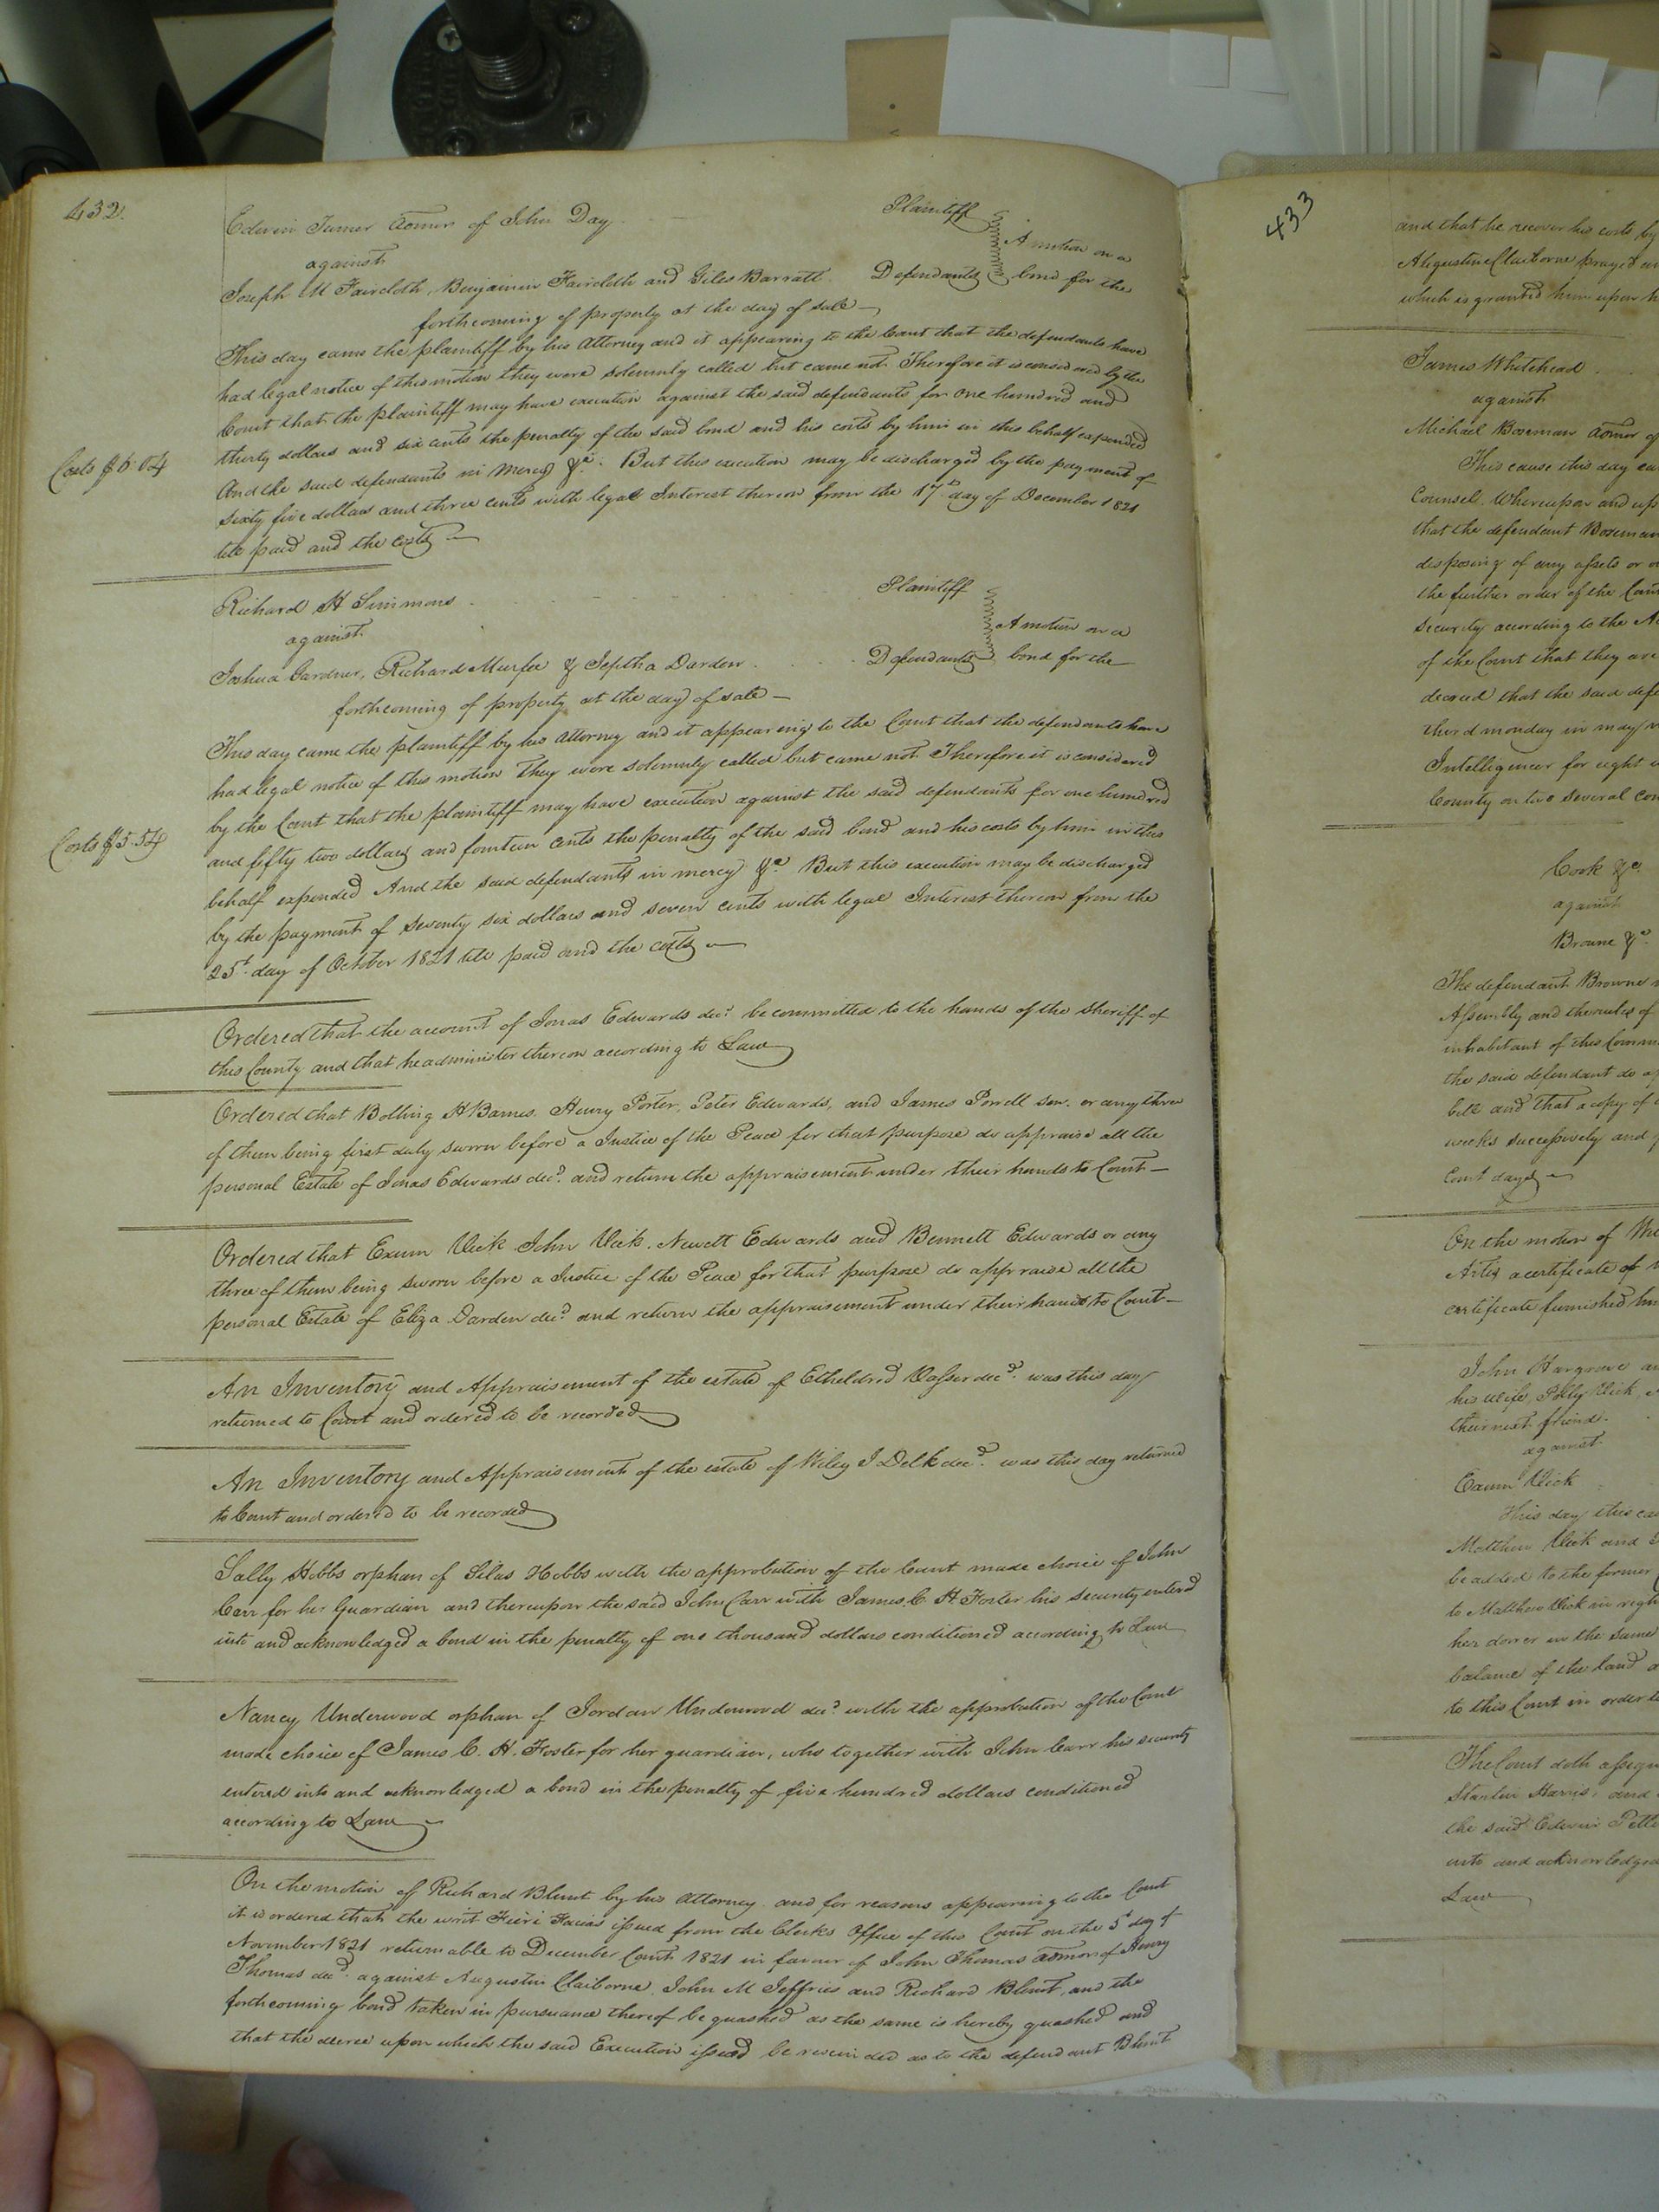 432.
Edwin Turner admor of John Day Plaintiff
against A motion on a
Joseph M Faircloth, Benjamin Faircloth and Giles Barratt Defendants bond for the
forthcoming of property at the day of sale
This day came the plaintiff by his Attorney and it appearing to the Court that the defendants have
had legal notice of this motion they were solemnly called but came not Therefore it is considered by the
Court that the plaintiff may have execution against the said defendants for one hundred and
thirty dollars and six cents the penalty of the said bond and his costs by him in this behalf expended
Costs $6.04
And the said defendants in mercy &c. But this execution may be discharged by the payment of
sixty five dollars and three cents with legal Interest thereon from the 17th day of December 1821
till paid and the costs
Richard H Simmons Plaintiff
against A motion on a
Joshua Gardner, Richard Murfee & Jeptha Darden Defendants bond for the
forthcoming of property at the day of sale
This day came the plaintiff by his attorney and it appearing to the Court that the defendants have
had legal notice of this motion They were solemnly called but came not Therefore it is considered
by the Court that the plaintiff may have execution against the said defendants for one hundred
Costs $5.54
and fifty two dollars and fourteen cents the penalty of the said bond and his costs by him in this
behalf expended And the said defendants in mercy &c. But this execution may be discharged
by the payment of Seventy six dollars and seven cents with legal Interest thereon from the
25t. day of October 1821 till paid and the costs
Ordered that the account of Jonas Edwards decd. be committed to the hands of the Sheriff of
this County and that he administer thereon according to Law
Ordered that Bolling H Barnes, Henry Porter, Peter Edwards, and James Powell Sen. or any three
of them being first duly sworn before a Justice of the Peace for that purpose do appraise all the
personal Estate of Jonas Edwards decd. and return the appraisement under their hands to Court
Ordered that Exum Vick John Vick, Newett Edwards and Bennett Edwards or any
three of them being sworn before a Justice of the Peace for that purpose do appraise all the
personal Estate of Eliza Darden decd. and return the appraisement under their hands to Court
An Inventory and Appraisement of the estate of Etheldred Vasser decd. was this day
returned to Court and ordered to be recorded
An Inventory and Appraisement of the estate of Wiley J Delk decd. was this day returned
to Court and ordered to be recorded
Sally Hobbs orphan of Silas Hobbs with the approbation of the Court made choice of John
Carr for her Guardian and thereupon the said John Carr with James C. H. Foster his security entered
into and acknowledged a bond in the penalty of one thousand dollars conditioned according to Law
Nancy Underwood orphan of Jordan Underwood decd. with the approbation of the Court
made choice of James C. H. Foster for her guardian, who together with John Carr his security
entered into and acknowledged a bond in the penalty of five hundred dollars conditioned
according to Law
On the motion of Richard Blunt by his attorney and for reasons appearing to the Court
it is ordered that the writ Fieri Facias issued from the Clerks Office of this Court on the 5t day of
November 1821 returnable to December Court 1821 in favour of John Thomas admor of Henry
Thomas decd. against Augustin Claiborne, John M Jeffries and Richard Blunt, and the
forthcoming bond taken in pursuance thereof be quashed as the same is hereby quashed and
that the decree upon which the said Execution issued be rescinded as to the defendant Blunt
433
and that he recover his costs by
Augustine Claiborne prayed an
which is granted him upon h
James Whitehead
against
Michael Boseman admor of
This cause this day ca
Counsel. Whereupon and up
that the defendant Boseman
disposing of any assets or
the further order of the Cour
security according to the A
of the Court that they are
decreed that the said defe
third monday in may
Intelligencer for eight
County on two several cou
Cook &c.
against
Browne &c.
The defendant Browne
Assembly and the rules of
inhabitant of this Comm
the said defendant do ap
bill and that a copy of
weeks successively and
Court days
On the motion of
Artis a certificate of
certificate furnished him
John Hargrove an
his wife, Polly Vick,
their next friend.
against
Exum Vick
This day this ca
Matthew Vick and
be added to the former
to Matthew Vick in righ
her dower in the same
balance of the land a
to this Court in order to
The Court doth assign
Harris, and
the said Edwin Pette
into and acknowledged
Law